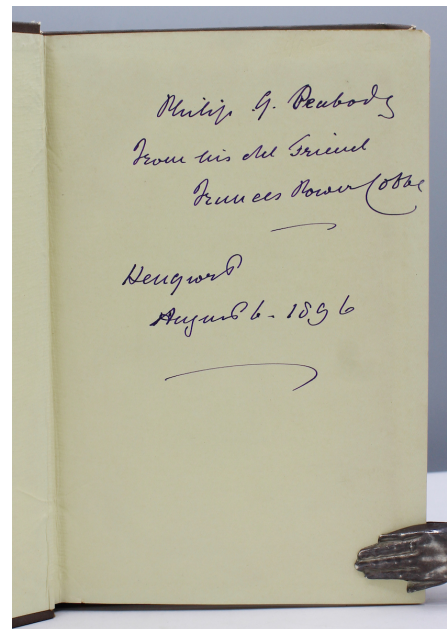 Philip G. Peabody
from his old Friend
Frances Power Cobbe
Hengwrt
August 6 - 1896